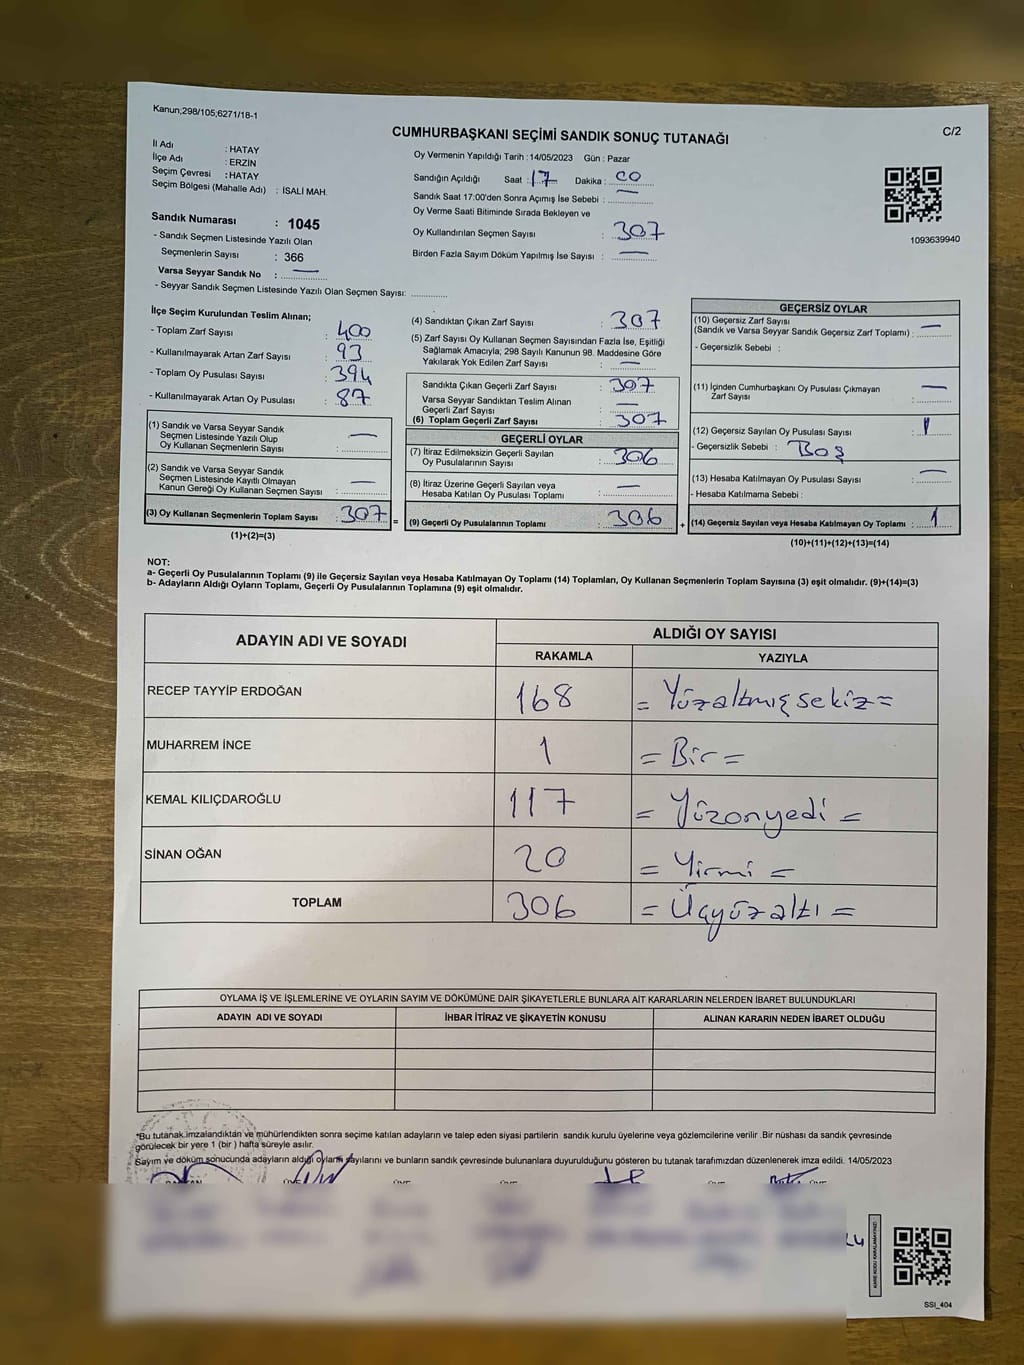 Kanun;298/105;6271/18-1
C/2
CUMHURBAŞKANI SEÇİMİ SANDIK SONUÇ TUTANAĞI
İl Adı : HATAY
İlçe Adı : ERZİN
Seçim Çevresi : HATAY
Seçim Bölgesi (Mahalle Adı) : İSALİ MAH.
Sandık Numarası : 1045
- Sandık Seçmen Listesinde Yazılı Olan
Seçmenlerin Sayısı : 366
Varsa Seyyar Sandık No : —
- Seyyar Sandık Seçmen Listesinde Yazılı Olan Seçmen Sayısı:
Oy Vermenin Yapıldığı Tarih : 14/05/2023 Gün : Pazar
Sandığın Açıldığı Saat : 17 Dakika : 00
Sandık Saat 17:00'den Sonra Açımış İse Sebebi : —
Oy Verme Saati Bitiminde Sırada Bekleyen ve
Oy Kullandırılan Seçmen Sayısı : 307
Birden Fazla Sayım Döküm Yapılmış İse Sayısı : —
1093639940
İlçe Seçim Kurulundan Teslim Alınan;
- Toplam Zarf Sayısı : 400
- Kullanılmayarak Artan Zarf Sayısı : 93
- Toplam Oy Pusulası Sayısı : 394
- Kullanılmayarak Artan Oy Pusulası : 87
(1) Sandık ve Varsa Seyyar Sandık
Seçmen Listesinde Yazılı Olup
Oy Kullanan Seçmenlerin Sayısı : —
(2) Sandık ve Varsa Seyyar Sandık
Seçmen Listesinde Kayıtlı Olmayan
Kanun Gereği Oy Kullanan Seçmen Sayısı : —
(3) Oy Kullanan Seçmenlerin Toplam Sayısı : 307
(1)+(2)=(3)
(4) Sandıktan Çıkan Zarf Sayısı : 307
(5) Zarf Sayısı Oy Kullanan Seçmen Sayısından Fazla İse, Eşitliği
Sağlamak Amacıyla; 298 Sayılı Kanunun 98. Maddesine Göre
Yakılarak Yok Edilen Zarf Sayısı : —
Sandıkta Çıkan Geçerli Zarf Sayısı : 307
Varsa Seyyar Sandıktan Teslim Alınan
Geçerli Zarf Sayısı : —
(6) Toplam Geçerli Zarf Sayısı : 307
GEÇERLİ OYLAR
(7) İtiraz Edilmeksizin Geçerli Sayılan
Oy Pusulalarının Sayısı : 306
(8) İtiraz Üzerine Geçerli Sayılan veya
Hesaba Katılan Oy Pusulası Toplamı : —
= (9) Geçerli Oy Pusulalarının Toplamı : 306
GEÇERSİZ OYLAR
(10) Geçersiz Zarf Sayısı
(Sandık ve Varsa Seyyar Sandık Geçersiz Zarf Toplamı) : —
- Geçersizlik Sebebi :
(11) İçinden Cumhurbaşkanı Oy Pusulası Çıkmayan
Zarf Sayısı —
(12) Geçersiz Sayılan Oy Pusulası Sayısı : 1
- Geçersizlik Sebebi : Boş
(13) Hesaba Katılmayan Oy Pusulası Sayısı : —
- Hesaba Katılmama Sebebi :
+ (14) Geçersiz Sayılan veya Hesaba Katılmayan Oy Toplamı : 1
(10)+(11)+(12)+(13)=(14)
NOT:
a- Geçerli Oy Pusulalarının Toplamı (9) ile Geçersiz Sayılan veya Hesaba Katılmayan Oy Toplamı (14) Toplamları, Oy Kullanan Seçmenlerin Toplam Sayısına (3) eşit olmalıdır. (9)+(14)=(3)
b- Adayların Aldığı Oyların Toplamı, Geçerli Oy Pusulalarının Toplamına (9) eşit olmalıdır.
ADAYIN ADI VE SOYADI
ALDIĞI OY SAYISI
RAKAMLA YAZIYLA
RECEP TAYYİP ERDOĞAN 168 = Yüzaltmışsekiz =
MUHARREM İNCE 1 = Bir =
KEMAL KILIÇDAROĞLU 117 = Yüzonyedi =
SİNAN OĞAN 20 = Yirmi =
TOPLAM 306 = Üçyüzaltı =
OYLAMA İŞ VE İŞLEMLERİNE VE OYLARIN SAYIM VE DÖKÜMÜNE DAİR ŞİKAYETLERLE BUNLARA AİT KARARLARIN NELERDEN İBARET BULUNDUKLARI
ADAYIN ADI VE SOYADI İHBAR İTİRAZ VE ŞİKAYETİN KONUSU ALINAN KARARIN NEDEN İBARET OLDUĞU
*Bu tutanak,imzalandıktan ve mühürlendikten sonra seçime katılan adayların ve talep eden siyasi partilerin sandık kurulu üyelerine veya gözlemcilerine verilir .Bir nüshası da sandık çevresinde
görülecek bir yere 1 (bir ) hafta süreyle asılır.
Sayım ve döküm sonucunda adayların aldığı oyların sayılarını ve bunların sandık çevresinde bulunanlara duyurulduğunu gösteren bu tutanak tarafımızdan düzenlenerek imza edildi. 14/05/2023
SSI_404